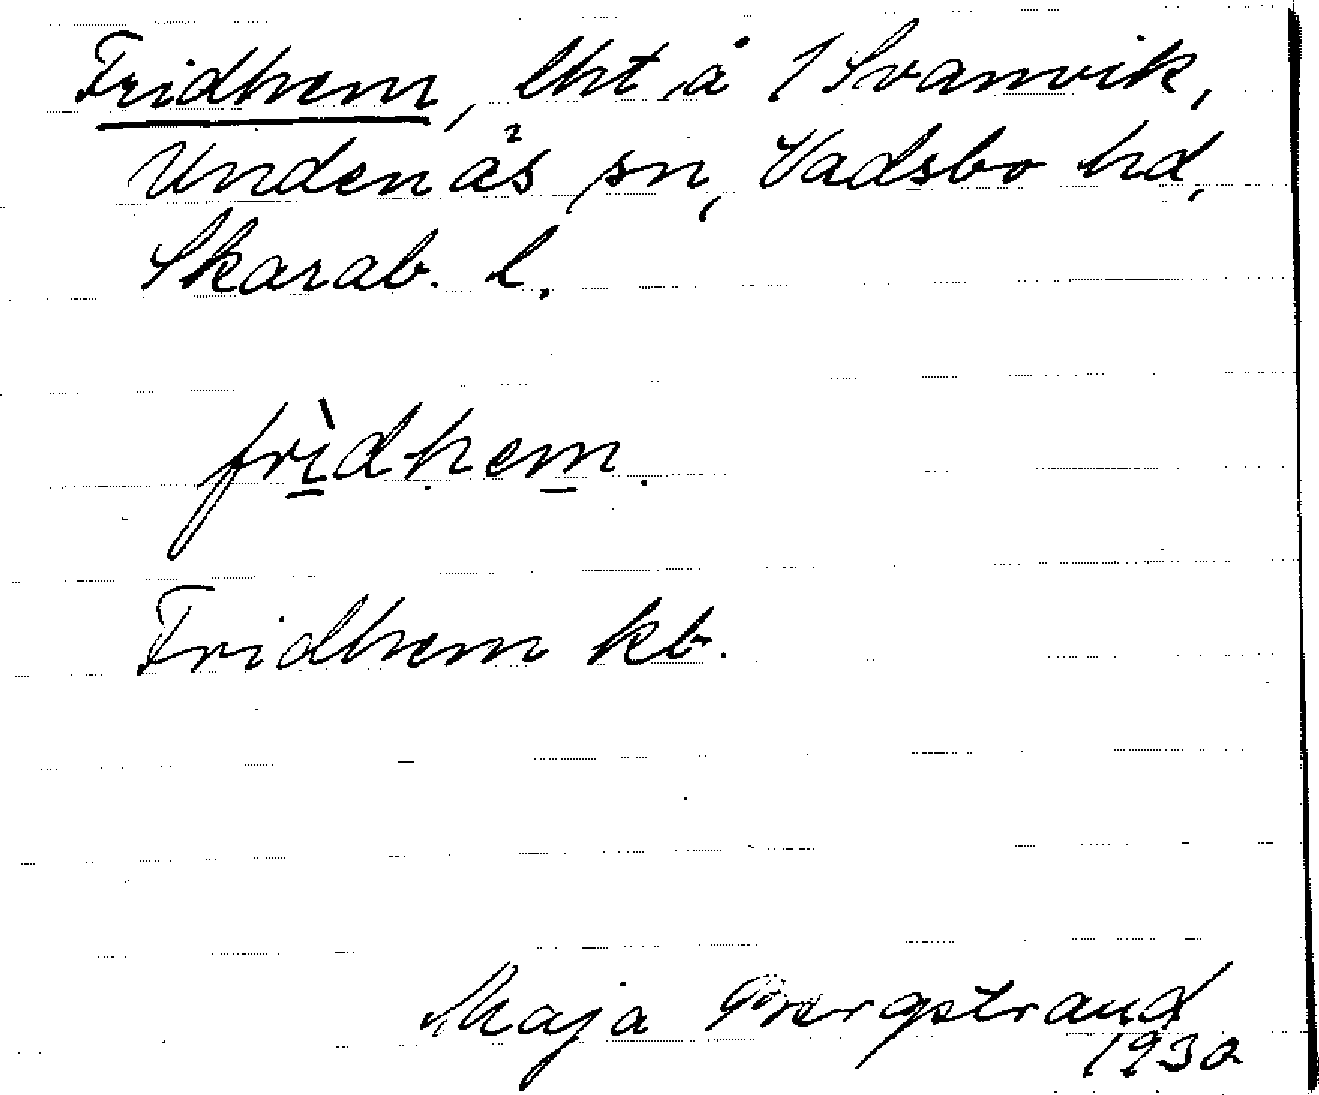 Fridhem, lht å 1 Svanvik,
Undenäs sn, Vadsbo hd,
Skarab. l.
frìdhem.
Fridhem kb.
Maja Bergstrand
1930